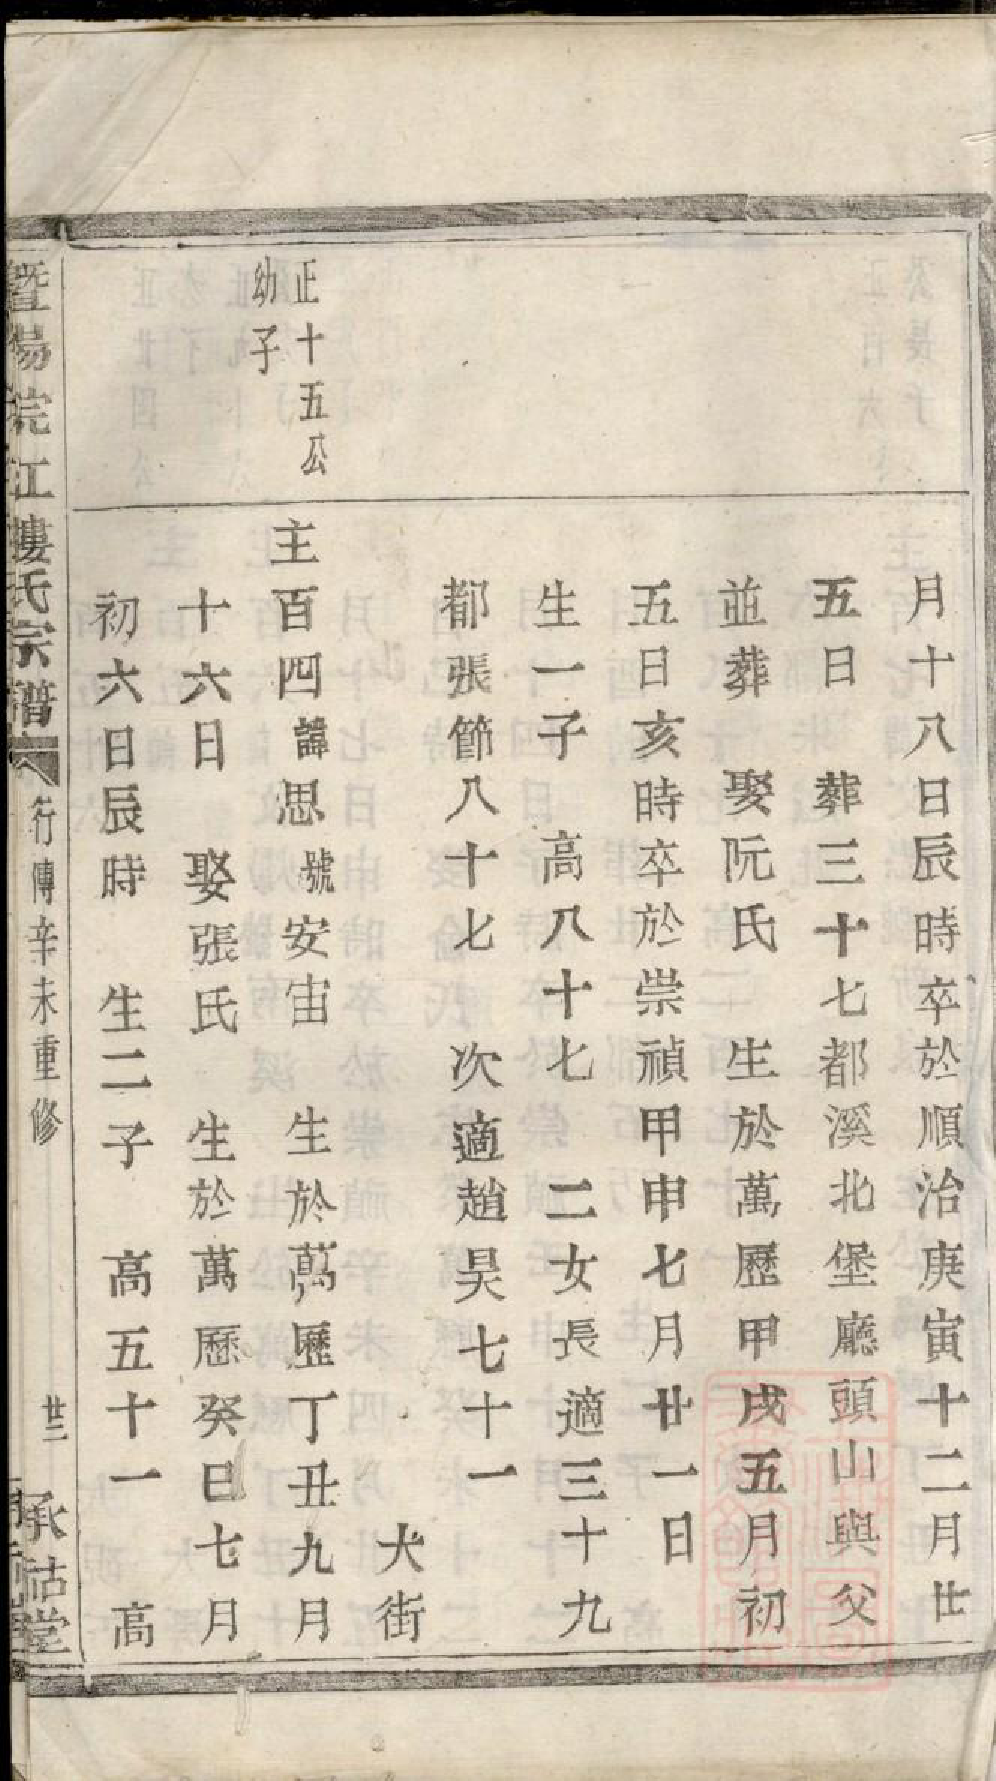 月十八日辰時卒於順治庚寅十二月廿
五日　葬三十七都溪北堡廳頭山與父
並葬　娶阮氏　生於萬歷甲戌五月初
五日亥時卒於崇禎甲申七月廿一日
生一子　高八十七　二女長適三十九
都張節八十七　次適趙昊七十一
犬街
正十五公
幼子
主百四諱思號安宙　生於萬歷丁丑九月
十六日　娶張氏　生於萬歷癸巳七月
初六日辰時　生二子　高五十一　高
暨陽浣江摟氏宗譜
行傳辛未重修
廿二
承祜堂